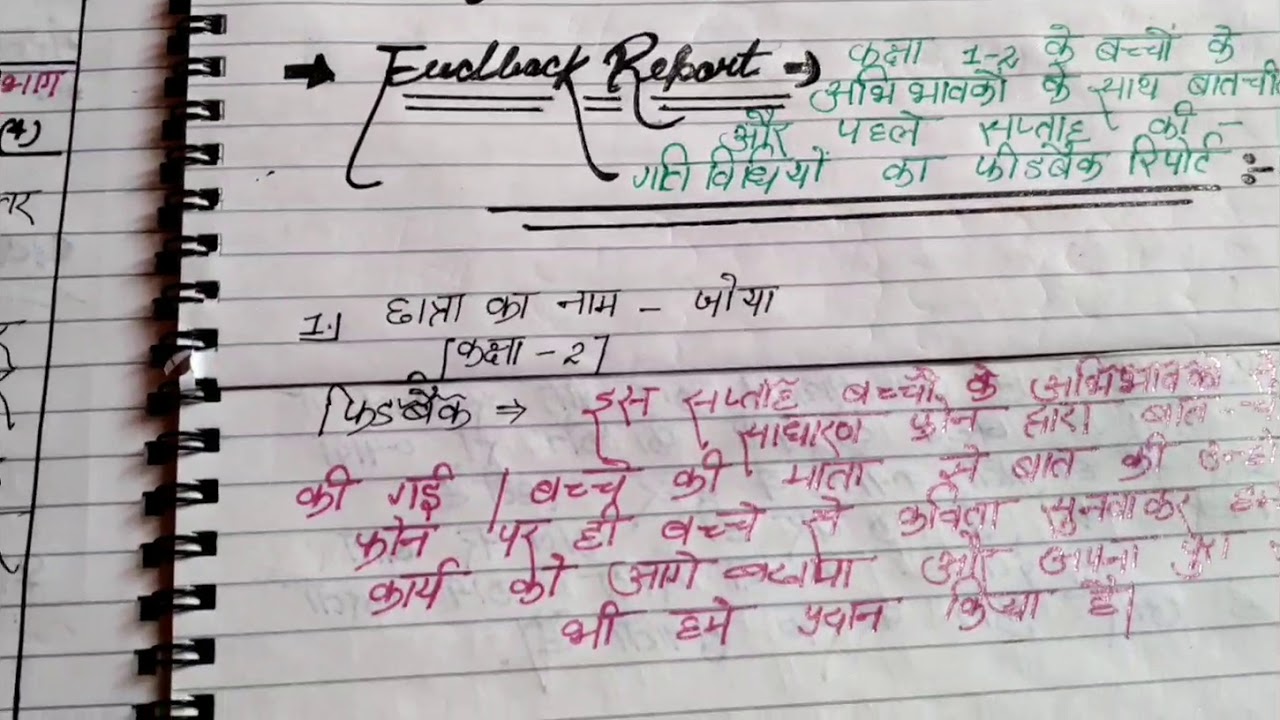 भाग
(4)
→ Feedback Report → कक्षा 1-2 के बच्चों के
अभिभावकों के साथ बातची
और पहले सप्ताह की -
गतिविधियों का फीडबैक रिपोर्ट :-
1.) छात्रा का नाम - जोया
[कक्षा - 2]
फिडबैक ⇒ इस सप्ताह बच्चों के अभिभावकों से
साधारण फ़ोन द्वारा बात -
की गई । बच्चे की माता से बात की उन्हो
फ़ोन पर ही बच्चे से कविता सुनवाकर
कार्य को आगे बढाया और अपना पुरा
भी हमे प्रदान किया है।